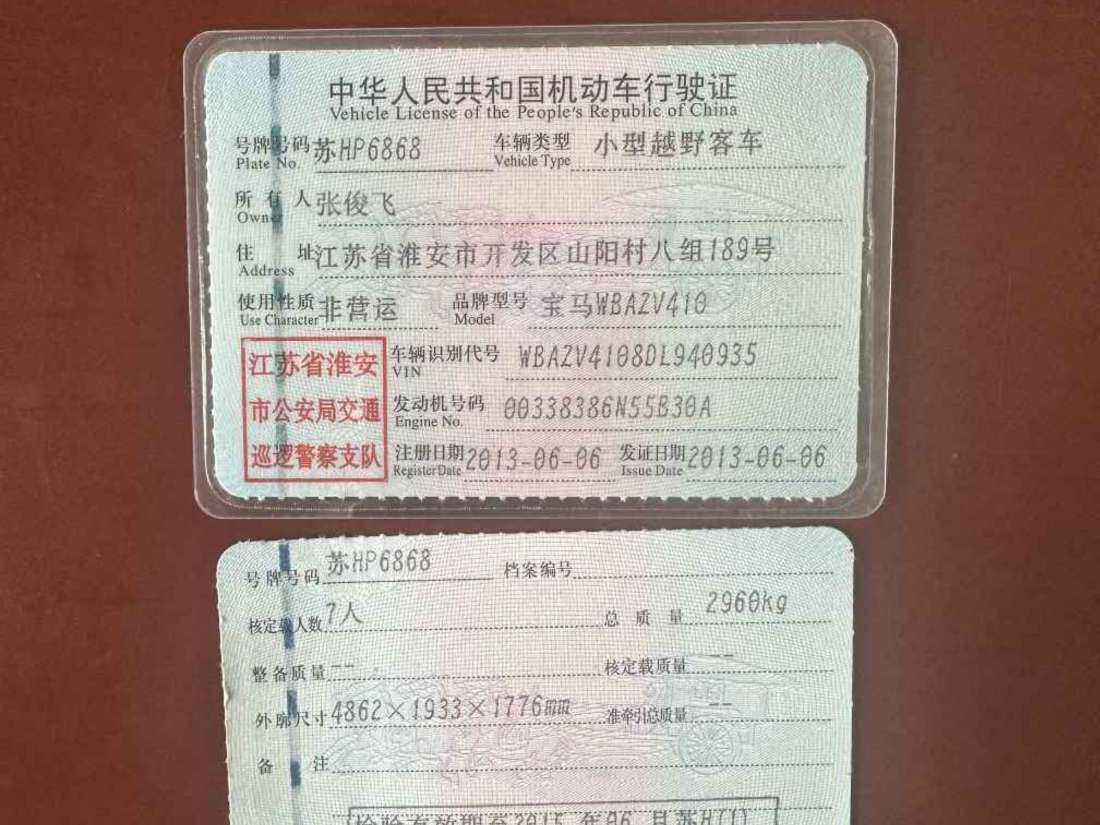 中华人民共和国机动车行驶证
Vehicle License of the People's Republic of China
号牌号码 苏HP6868 车辆类型 小型越野客车
Plate No. Vehicle Type
所有人 张俊飞
Owner
住址 江苏省淮安市开发区山阳村八组189号
Address
使用性质 非营运 品牌型号 宝马WBAZV410
Use Character Model
江苏省淮安
市公安局交通
巡逻警察支队
车辆识别代号 WBAZV4108DL940935
VIN
发动机号码 00338386N55B30A
Engine No.
注册日期 2013-06-06 发证日期 2013-06-06
Register Date Issue Date
号牌号码 苏HP6868 档案编号
核定载人数 7人 总质量 2960kg
整备质量 -- 核定载质量 --
外廓尺寸 4862×1933×1776mm 准牵引总质量 --
备注
检验有效期至2015年06月苏H(1)